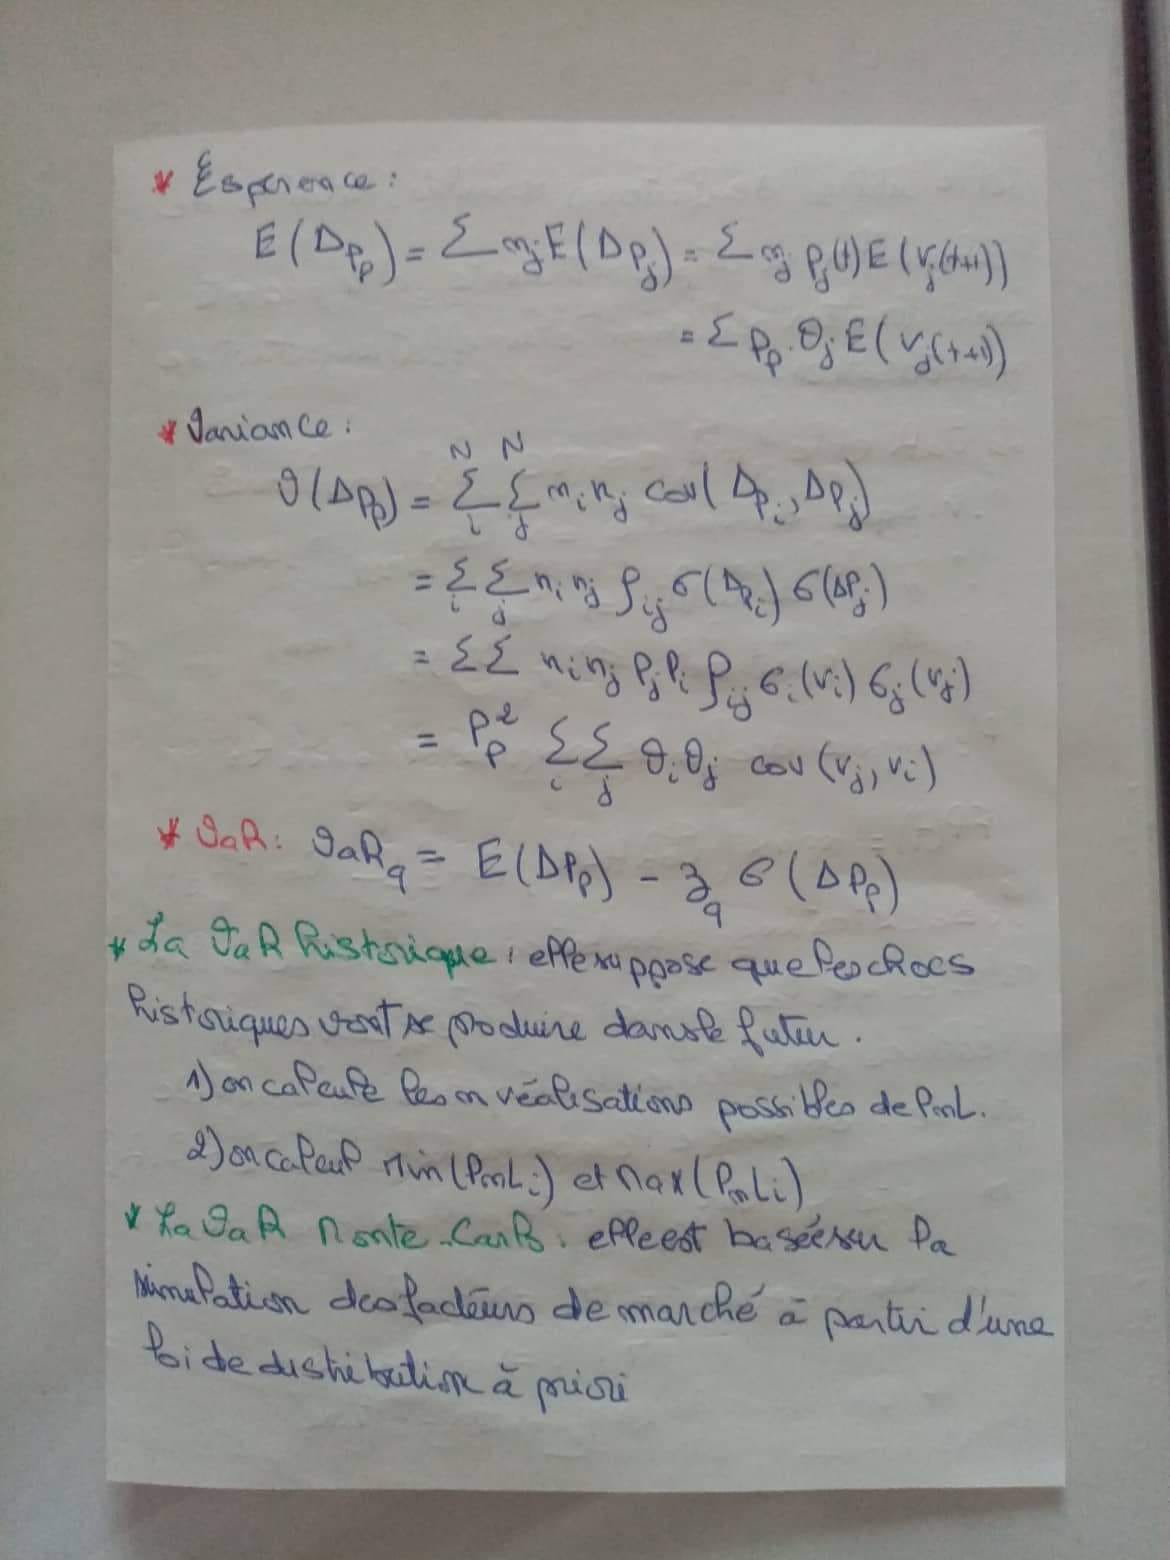 * Espérence :
E(ΔPp) = Σ nj E(ΔPj) = Σ nj Pj(t) E(rj(t+1))
= Σ Pp . θj E(rj(t+1))
* Variance :
V(ΔPp) = Σ_i^N Σ_j^N ni nj cov(ΔPi, ΔPj)
= Σ_i Σ_j ni nj ρij σ(ΔPi) σ(ΔPj)
= ΣΣ ni nj Pj Pi ρij σi(ri) σj(rj)
= Pp² Σ_i Σ_j θi θj cov(rj, ri)
* VaR : VaRq = E(ΔPp) - zq σ(ΔPp)
* La VaR historique : elle suppose que les chocs
historiques vont se produire dans le futur.
1) on calcule les n réalisations possibles de PnL.
2) on calcul Min(PnLi) et Max(PnLi)
* La VaR Monte-Carlo : elle est basée sur la
simulation des facteurs de marché à partir d'une
loi de distribution à priori